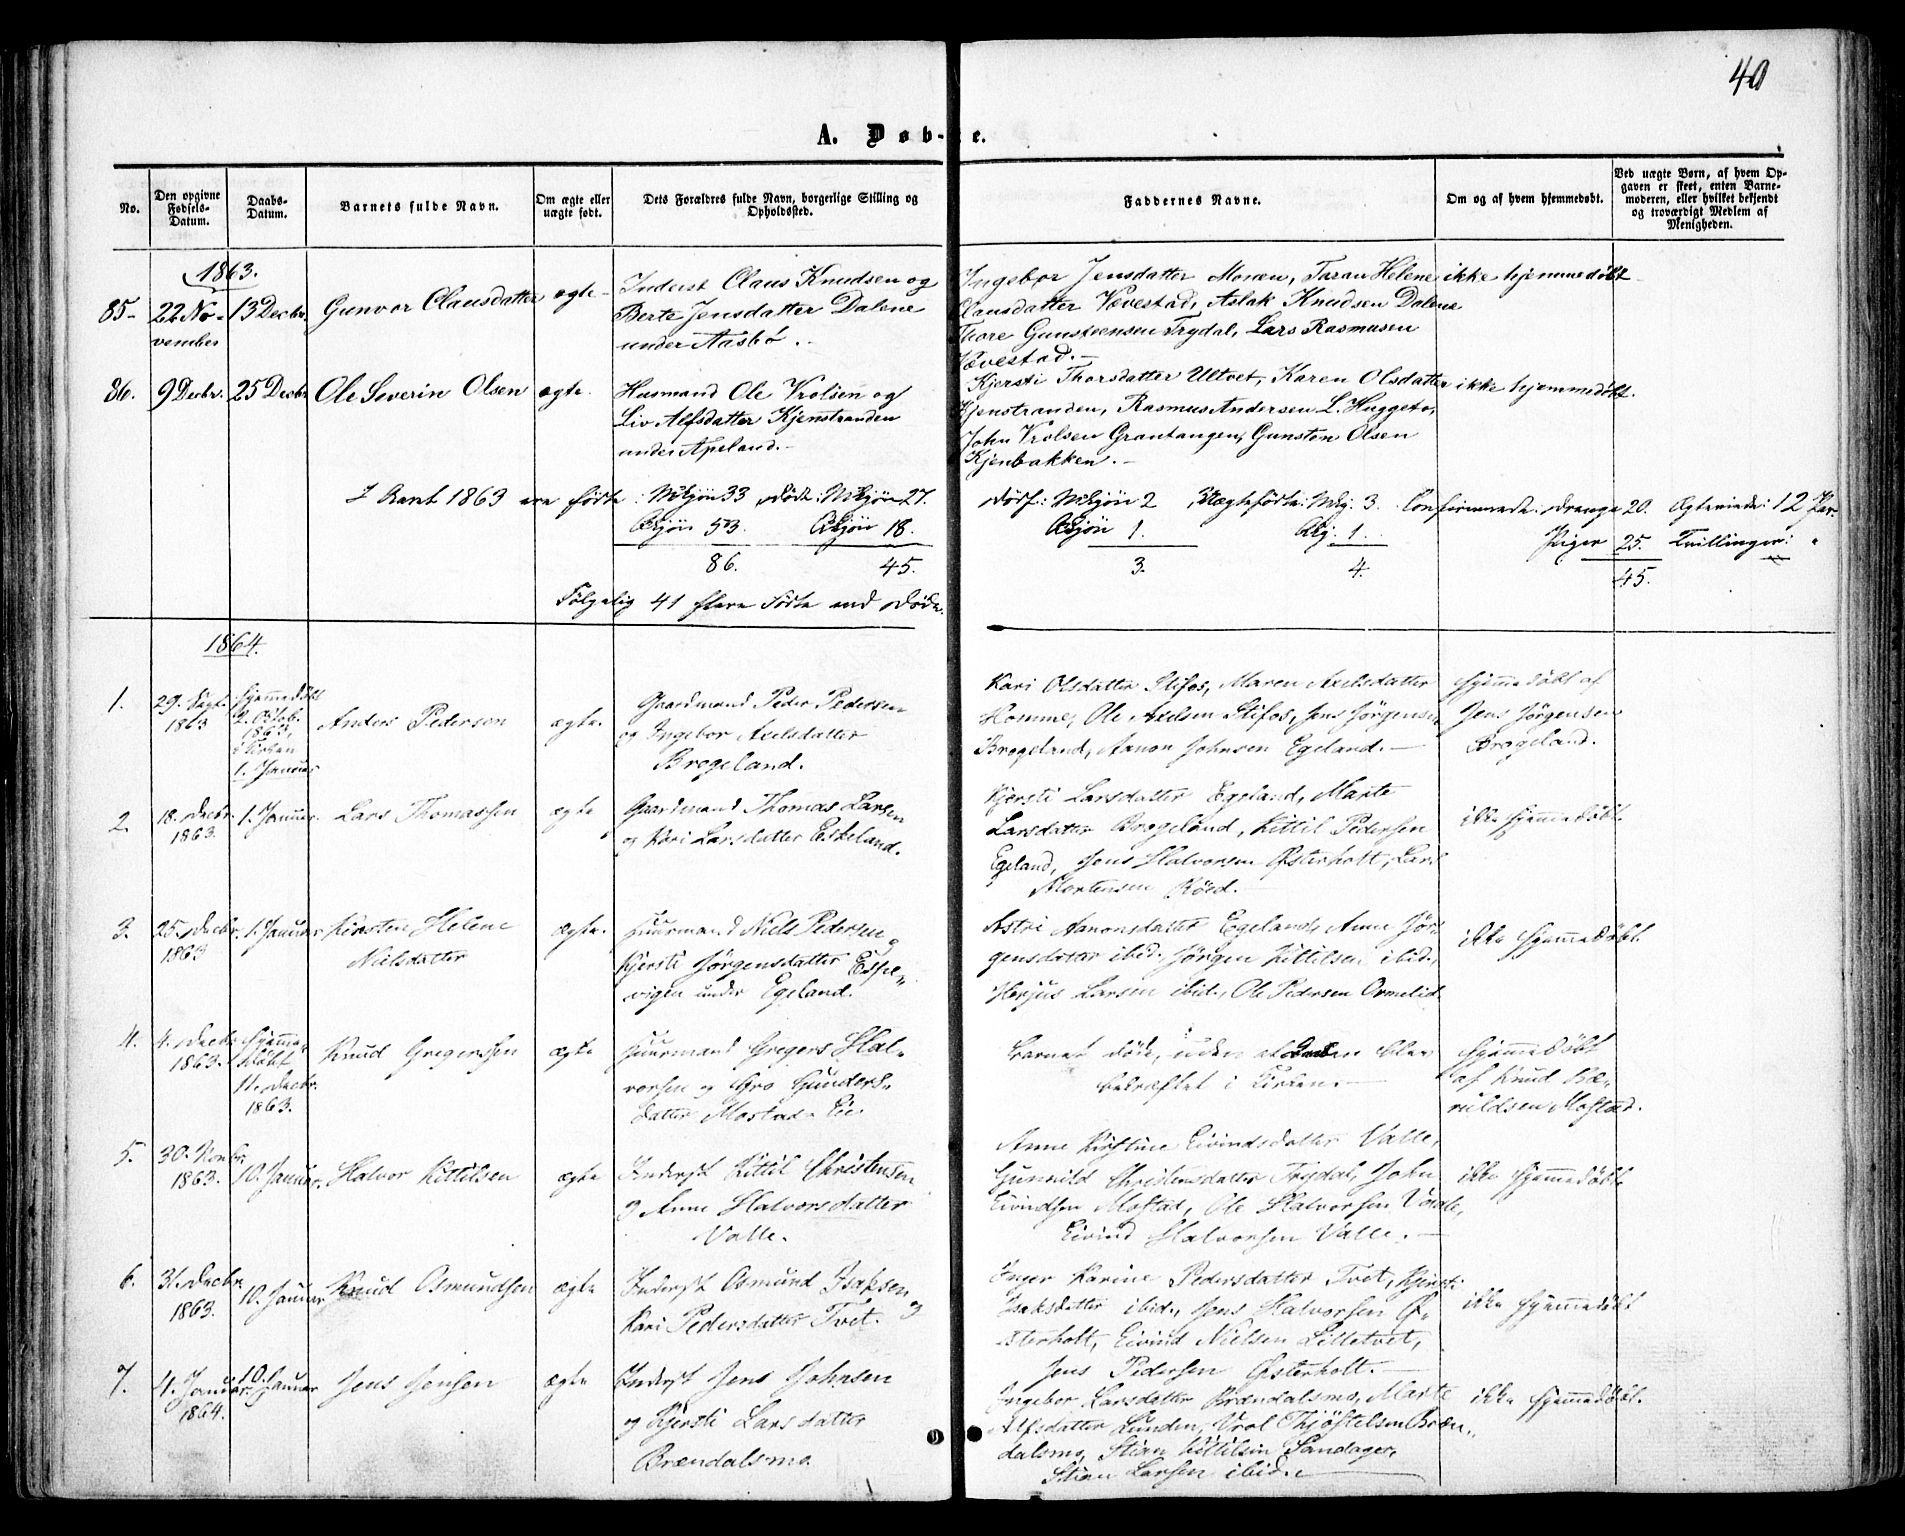 40
A. Døb-te.
No.
Den opgivne Fødsels-Datum.
Daabs-Datum.
Barnets fulde Navn.
Om ægte eller uægte født.
Dets Forældres fulde Navn, borgerlige Stilling og Opholdssted.
Faddernes Navne.
Om og af hvem hjemmedøbt.
Ved uægte Børn, af hvem Opgaven er skeet, enten Barnemoderen, eller hvilket bekjendt og troværdigt Medlem af Menigheden.
1863.
85- 22 No- 13 Decbr. Gunvor Clausdatter ægte- Inderst Claus Knudsen og Ingebor Jensdatter Moræn, Taran Helene ikke hjemmedøbt
vember Berte Jensdatter Dalene Clausdatter Vævestad, Aslak Knudsen Dalene
under Aasbø. Thore Gunsteensen Trydal, Lars Rasmusen
Vævestad.-
86. 9 Decbr. 25 Decbr Ole Severin Olsen ægte. Husmand Ole Vrolsen og Kjersti Thorsdatter Ultvet, Karen Olsdatter ikke hjemmedøbt.
Liv Alfsdatter Kjenstranden Kjenstranden, Rasmus Andersen L. Huggeto,
under Apeland.- John Vrolsen Grantangen, Gunsten Olsen
Kjenbakken.-
I Aaret 1863 ere fødte: Mkjøn 33 døde: Mkjøn 27. dødf.: Mkjøn 2 Uægtefødte: Mkj. 3. Confirmerede: Drenge 20. Ægteviede: 12 Par.
Qkjön 53. Qkjön 18. Qkjön 1. Qkj. 1. Piger 25. Tvillinger: "
86. 45. 3. 4. 45.
Følgelig 41 flere fødte end døde.
1864.
1. 29. Sept. 1863 Hjemmedøbt 2. Octob. 1863. i Kirken 1. Januar Anders Pedersen ægte. Gaardmand Peder Pedersen
og Ingebor Axelsdatter
Brogeland.
Kari Olsdatter Stifos, Maren Axelsdatter
Homme, Ole Axelsen Stifos, Jens Jørgensen
Brogeland, Aanon Johnsen Egeland.-
Hjemmedøbt af
Jens Jørgensen
Brogeland.
2. 18. Decbr. 1863. 1. Januar. Lars Thomassen ægte Gaardmand Thomas Larsen
og Kari Larsdatter Eskeland.
Kjersti Larsdatter Egeland, Marte
Larsdatter Brogeland, Kittil Pedersen
Egeland, Jens Halvorsen Østerholt, Lars
Mortensen Röed.
ikke hjemmedøbt.
3. 25. Decbr. 1863 1. Januar Kirsten Helene
Nielsdatter
ægte. Huusmand Niels Pedersen og
Kjersti Jørgensdatter Espe-
vigen under Egeland.
Astri Aanonsdatter Egeland, Anne Jör-
gensdatter ibid. Jörgen Kittilsen ibid.,
Herjus Larsen ibid., Ole Pedersen Ormelid.
ikke hjemmedøbt.
4. 4. Decbr. 1863. Hjemme-
døbt
11. Decbr.
1863.
Knud Gregersen ægte Huusmand Gregers Hal-
vorsen og Gro Gunders-
datter Mostad-Eie.
Barnet døde, uden at Daaben blev
bekræftet i Kirken.-
Hjemmedøbt
af Knud
Mostad.
5. 30. Novbr. 1863. 10. Januar. Halvor Kittilsen ægte Inderst Kittil Christensen
og Anne Halvorsdatter
Valle.
Anne Kirstine Eivindsdatter Valle,
Gunnild Christensdatter Trydal, John
Eivindsen Mostad, Ole Halvorsen Valle,
Eivind Halvorsen Valle.-
ikke hjemmedøbt
6. 31. Decbr. 1863. 10. Januar Knud Osmundsen ægte Inderst Osmund Isaksen og
Kari Pedersdatter Tvet.
Inger Karine Pedersdatter Tvet, Kjersti
Isaksdatter ibid., Jens Halvorsen Ø-
sterholt, Eivind Nielsen Lilletvet,
Jens Pedersen Østerholt.-
ikke hjemmedøbt
7. 4. Januar. 1864. 10. Januar Jens Jensen ægte Inderst Jens Johnsen
og Kjersti Larsdatter
Brændalsmo.
Ingebor Larsdatter Brændalsmo, Marte
Alfsdatter Lunden, Vrol Thjøstelsen Bræn-
dalsmo, Stian Kittilsen Sandager,
Stian Larsen ibid.
ikke hjemmedøbt.